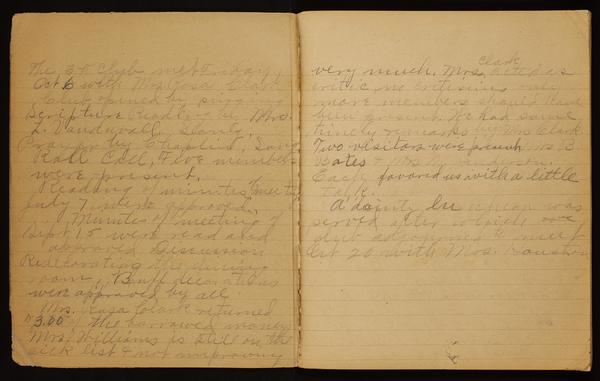 The 3-F Club met Friday,
Oct 6 with Mrs. Rosa Clark
Club opened by singing
Scripture Reading by Mrs.
L. Vanduvall, Song,
Prayer by Chaplin, Song
Roll Call, Five members
were present.
Reading of minutes, meeting
July 7, were approved.
Minutes of meeting of
Sept 15 were read and
approved. Discussion
Redecorating the dining
room, Buff decorations
were approved by all.
Mrs. Rosa Clark returned
$3.00 of the borrowed money
Mrs. Williams is still on the
sick list & not improving
very much. Mrs. Clark acted as
critic, no criticism only
more members should have
been present. We had some
timely remarks by Mrs. Clark.
Two visitors were present, Mrs. B.
Bates & Mrs. Anderson.
Each favored us with a little
talk.
A dainty luncheon was
served after which
club adjourned to meet
Oct 20 with Mrs. Houston